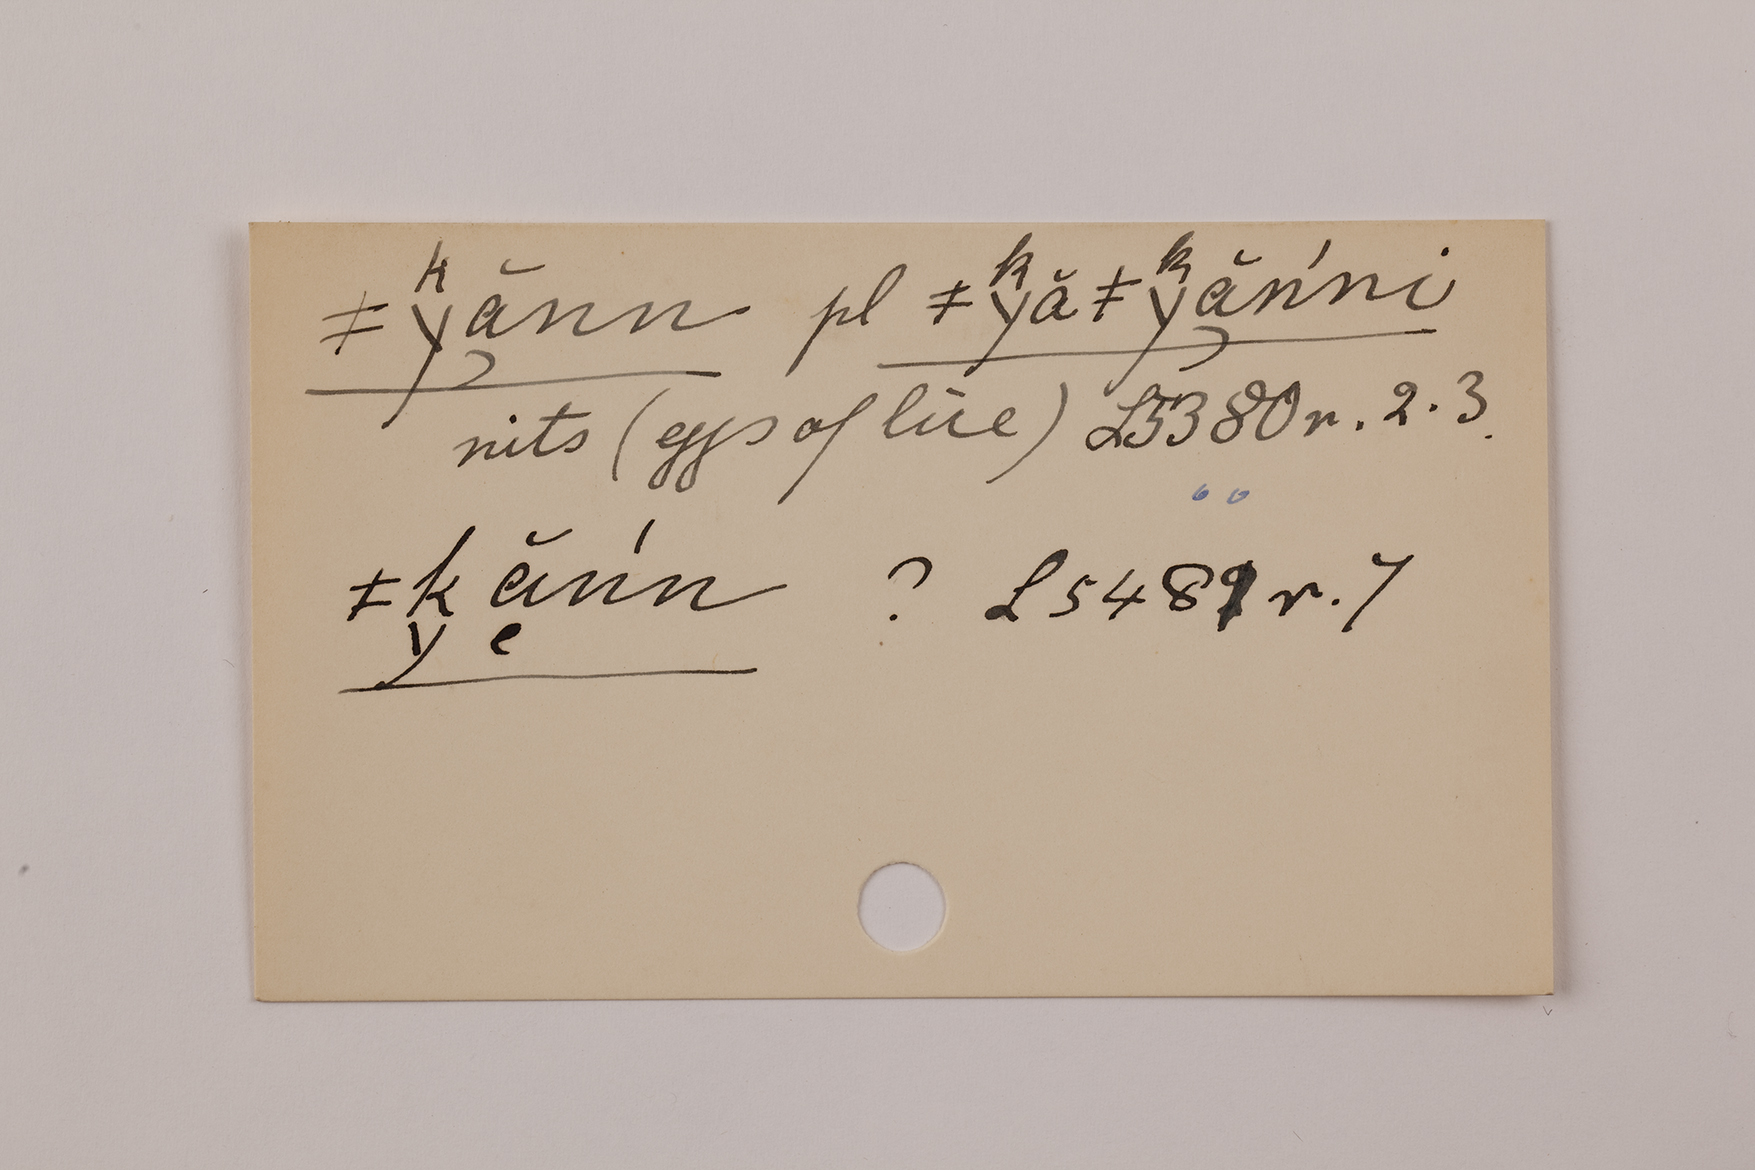 ǂᵏyănn pl ǂᵏyăǂᵏyăn'ni
nits (eggs of lice) L5380 r. 2.3.
ǂkăn'n ? L5489 r. 7
y e